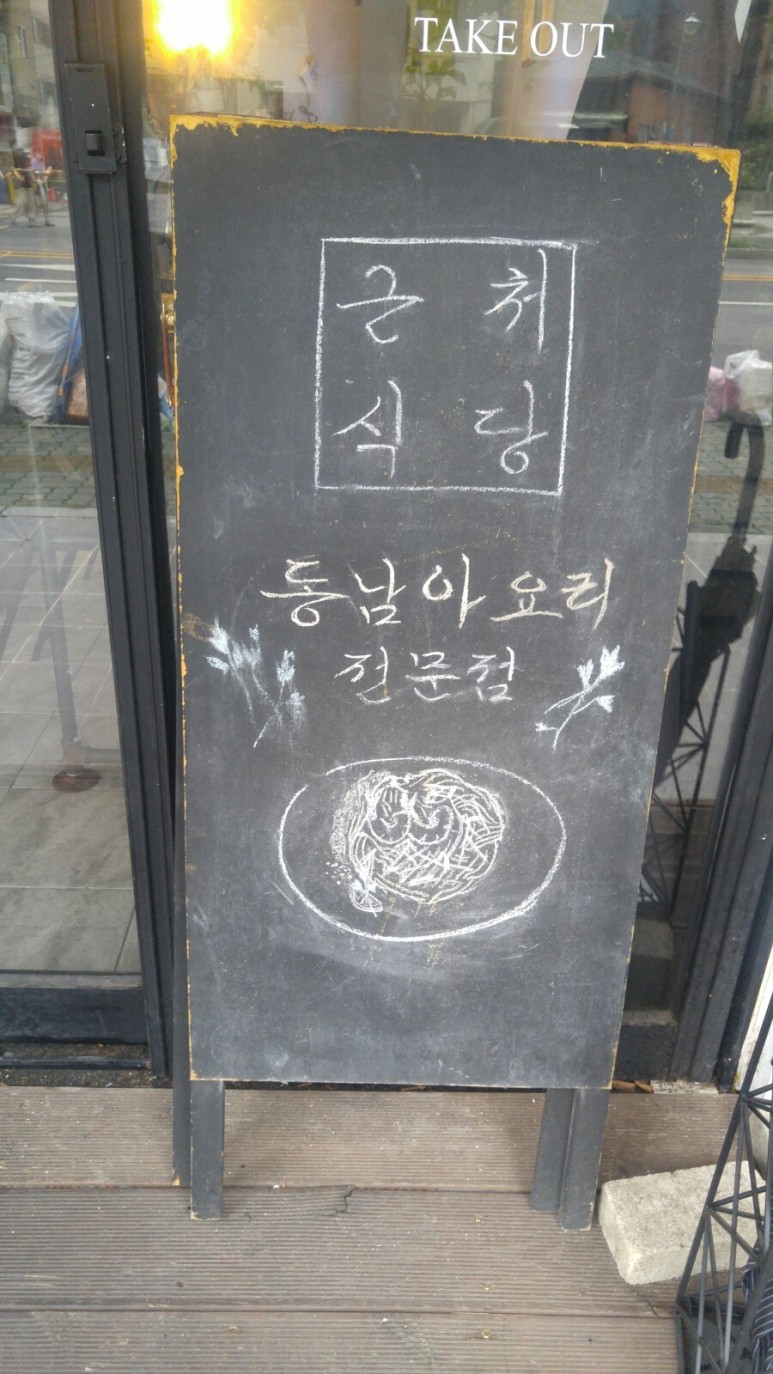 TAKE OUT
근처
식당
동남아 요리
전문점